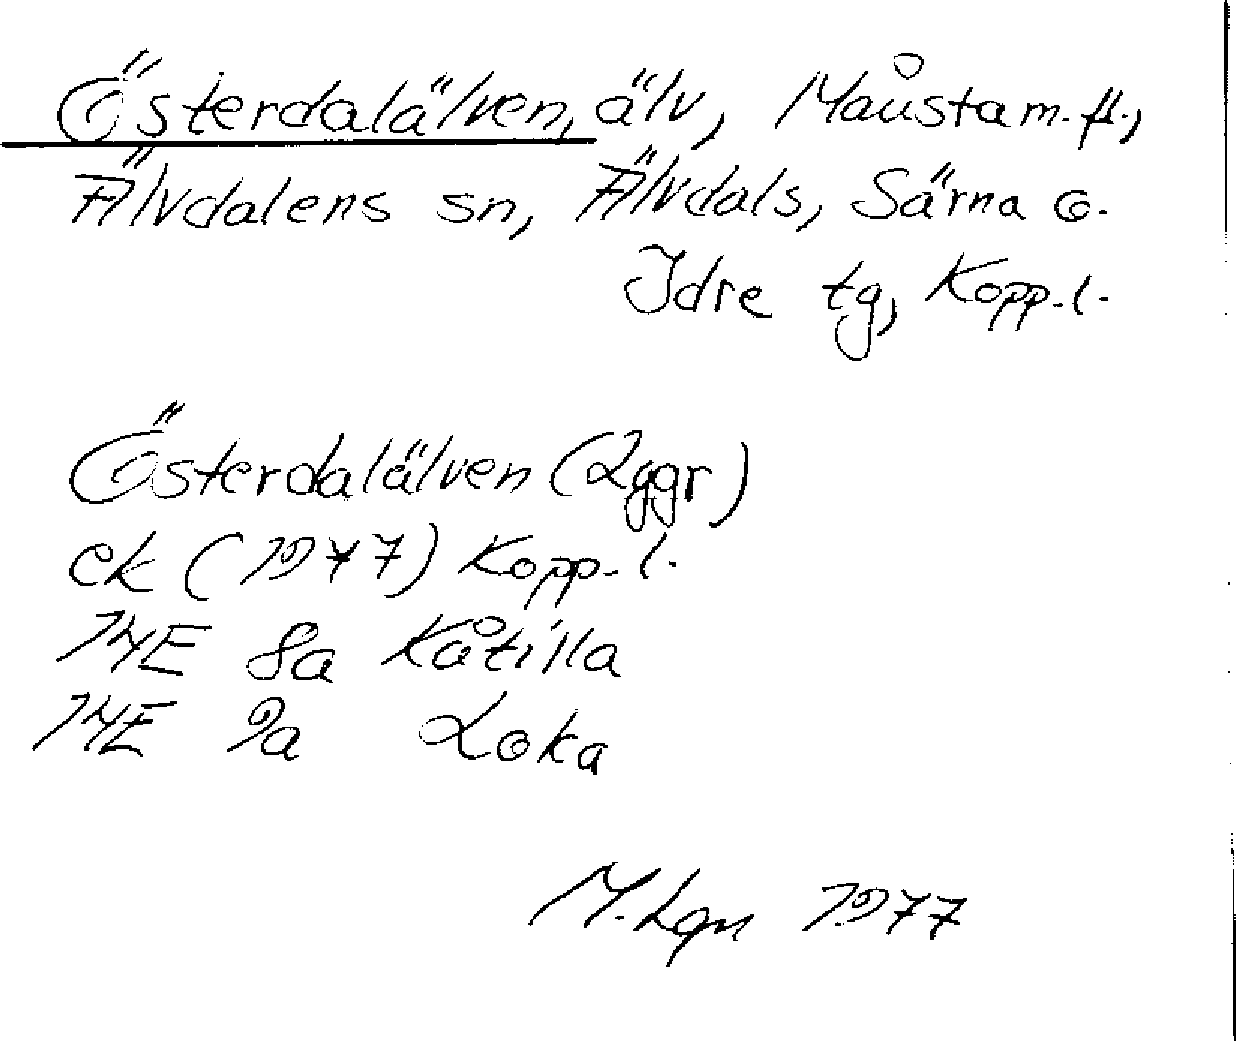 Österdalälven, älv, Måusta m. fl.,
Älvdalens sn, Älvdals, Särna o.
Idre tg, Kopp. l.
Österdalälven (2ggr)
ek (1977) Kopp. l.
14E 8a Kåtilla
14E 9a Loka
M. Lgn 1977